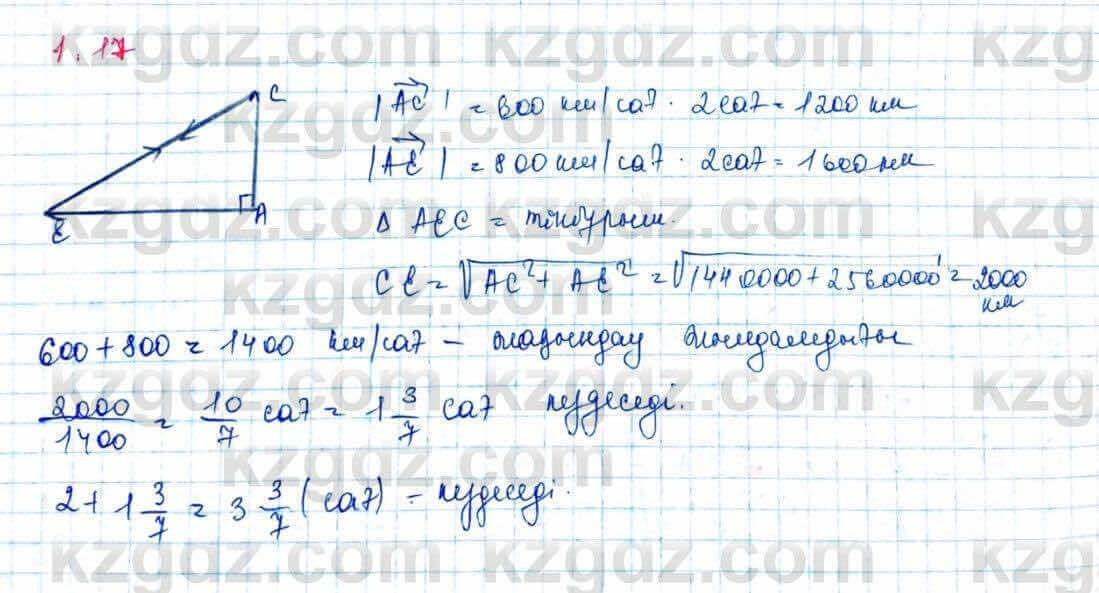 1.17
C
A
B
|AC| = 600 км/сағ · 2сағ = 1200 км
|AB| = 800 км/сағ · 2сағ = 1600 км
Δ ABC = тікбұрыш.
CB = √AC² + AB² = √1440000 + 2560000 = 2000 км
600 + 800 = 1400 км/сағ – жақындау жылдамдығы
2000/1400 = 10/7 сағ = 1 3/7 сағ кездеседі.
2 + 1 3/7 = 3 3/7 (сағ) – кездеседі.
kzgdz.com